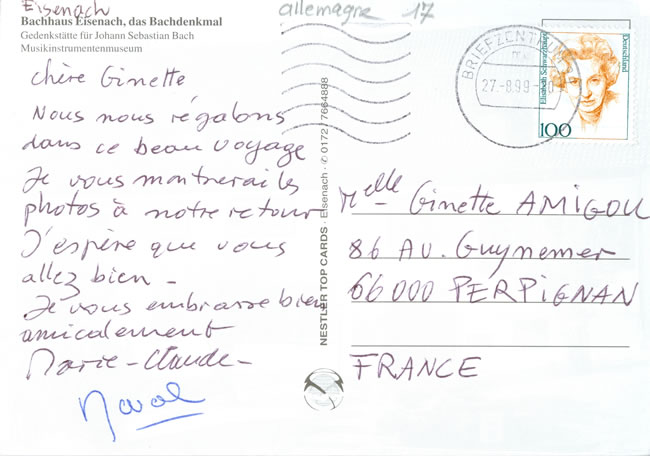 Eisenach
Bachhaus Eisenach, das Bachdenkmal
Gedenkstätte für Johann Sebastian Bach
Musikinstrumentenmuseum
allemagne 17
chère Ginette
Nous nous régalons
dans ce beau voyage
Je vous montrerai les
photos à notre retour
J'espère que vous
allez bien -
Je vous embrasse bien
amicalement
Marie-Claude-
NESTLER TOP CARDS · Eisenach · ✆ 0172 / 7664888
BRIEFZENTRUM
27.-8.99
Elisabeth Schwarzhaupt
Deutschland
100
Melle Ginette AMIGOU
86 AV. Guynemer
66000 PERPIGNAN
FRANCE